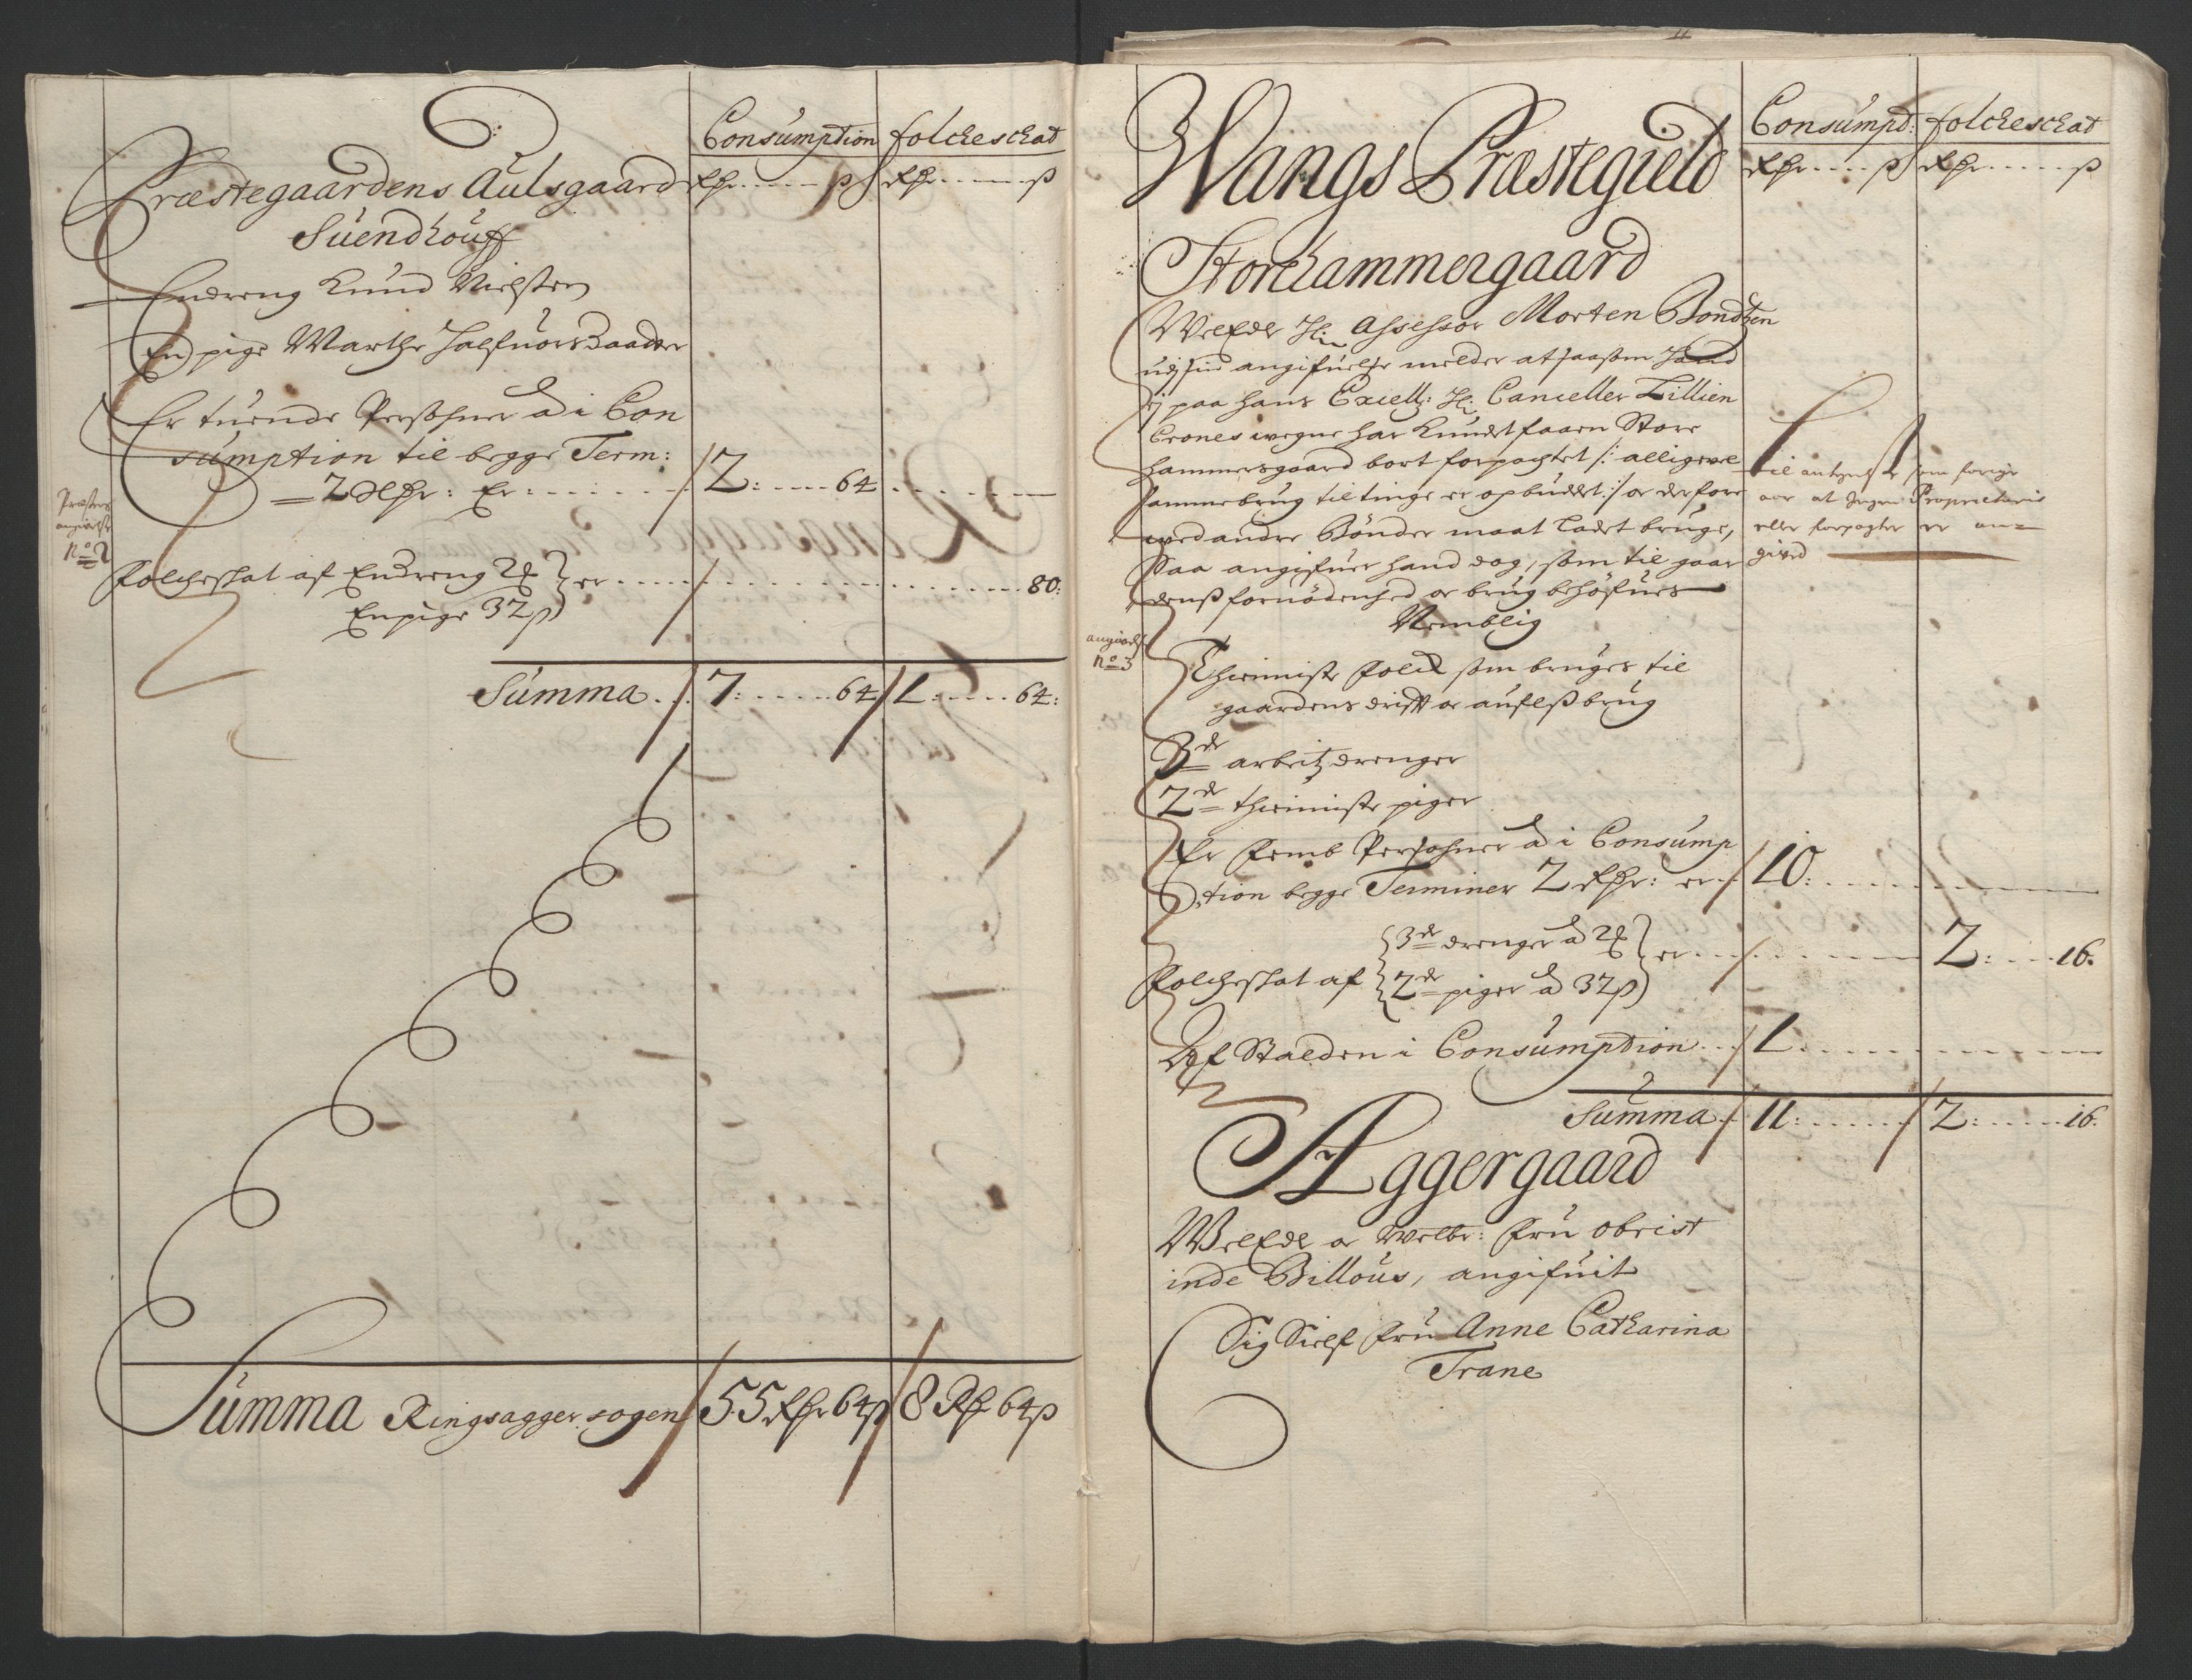 Consumption folckeschat
Rdr ß Rdr ß
Præstegaardens Aulsgaard
Suendhouff
En dreng Knud Nielsen
En pige Marthe Halfuorsdaatter
Er tuende Persohner a i Con
sumption til begge Term:
2 Rdr: Er: 2: 64
Præstens
angivelse
No 2
Folcheskat af En dreng
En pige 32 ß er 80:
Summa 7: 64 1: 64:
Summa Ringsagger sogen 55 Rdr 64 ß 8 Rd 64 ß
Wangs Præstegield
Consumpt: folckeschat
Rdr ß Rdr ß
Storehammergaard
WelEdle Hr Assessor Morten Bondtzen
udj sin angifuelse melder at saasom Hand
ej paa hans Excell: Hr: Canceller Lillien
Crones wegne har kundet faaen Store
hammersgaard bort forpachtet /: alligevel
samme brug til tinge er opbudet :/ or derfore
wed andre Bønder maat ladet bruge,
Saa angifuer hand dog, som til gaar
dens fornødenhed or brug behøfues
Nemblig
til antegnelse som forige
aar at Ingen Proprietaris
eller forpagter er an=
gived
angivelse
No 3
Thienniste Folck som bruges til
gaardens drifft or aufls brug
3de arbeitz drenger
2de thienniste piger
Er Femb Persohner a i Consump
tion begge Terminer 2 Rdr: er 10:
3de drenger a
Folcheskat af 2de piger a 32 ß er 2: 16.
Af Stalden i Consumption 1
Summa 11: 2: 16.
Aggergaard
WelEdl or Welbr: Fru Obrist
inde Billous, angifuit
Sig Sielf Fru Anne Catharina
Trane